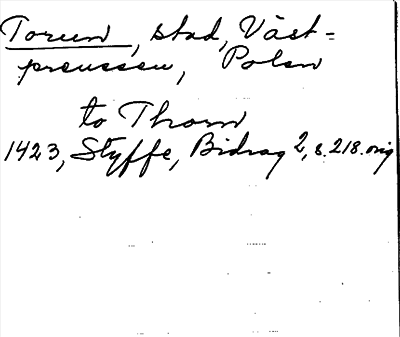 Torun, stad, Väst=
preussen, Polen
to Thorn
1423, Styffe, Bidrag 2, s. 218. orig